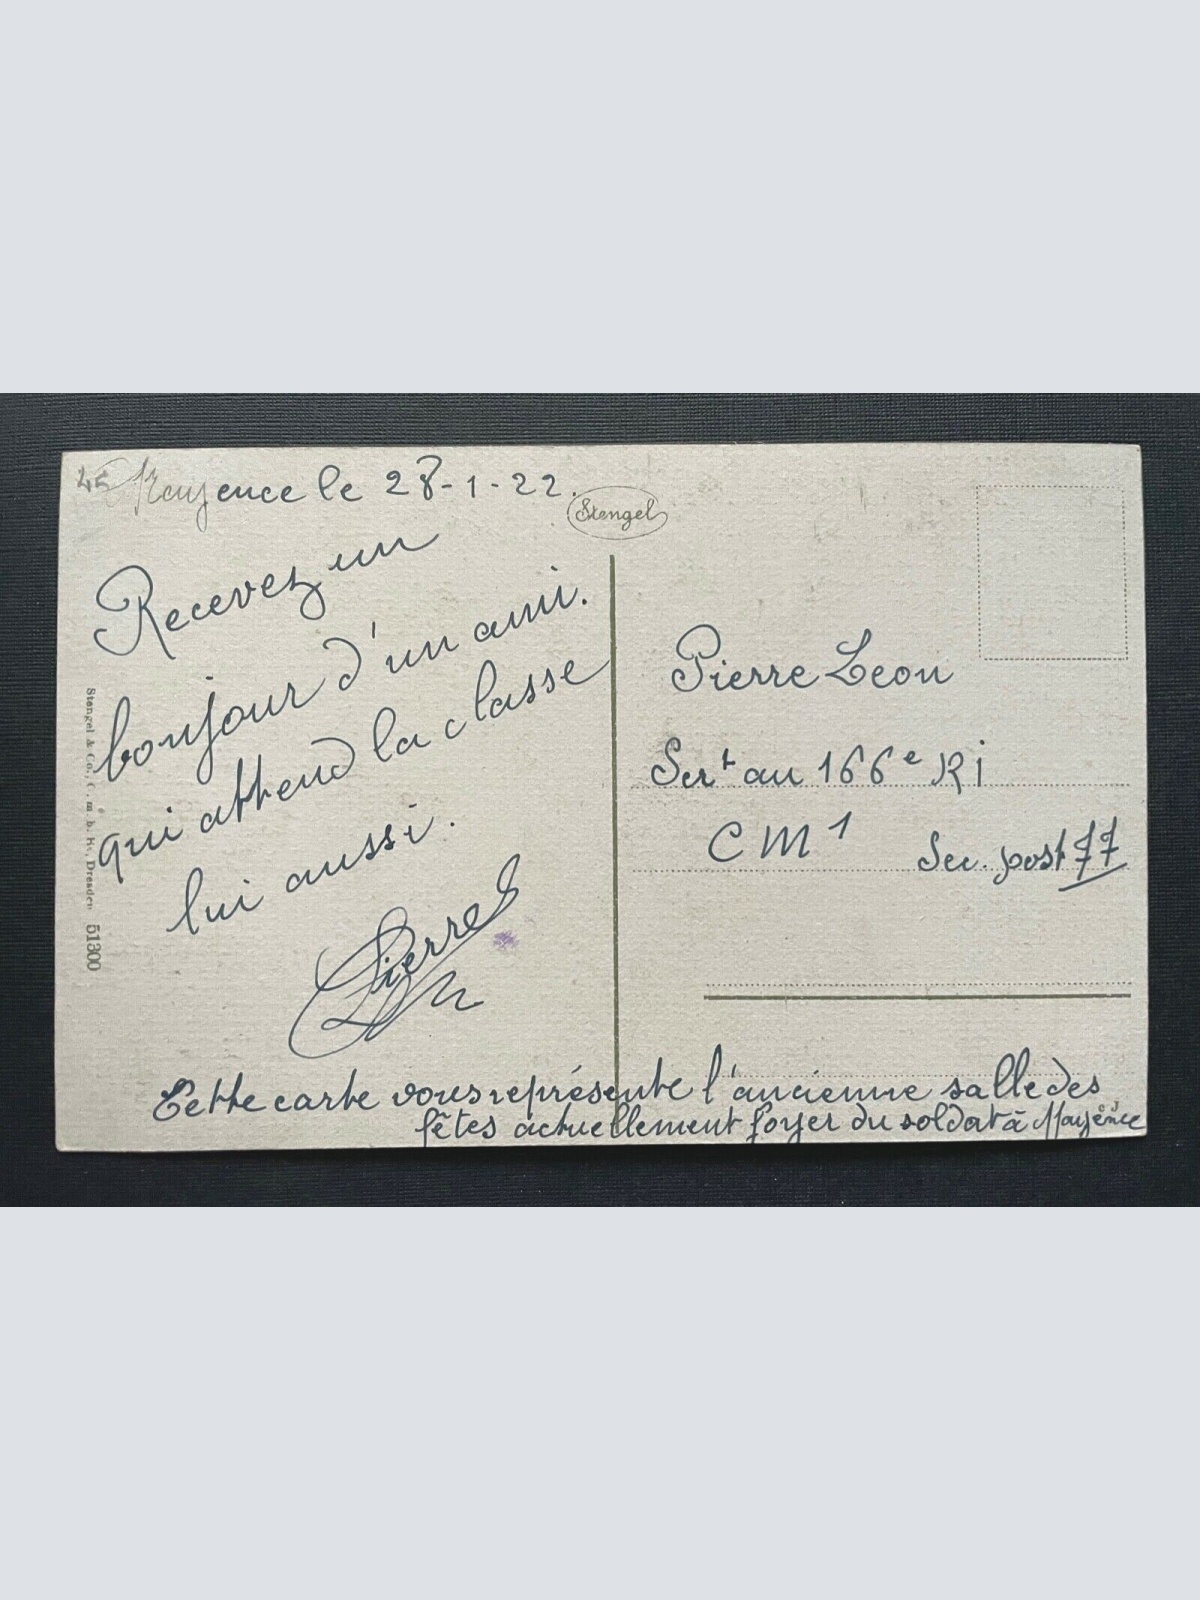 Mayence le 28-1-22.
Stengel
Recevez un
bonjour d'un ami.
qui attend la classe
lui aussi.
Pierre
Pierre Leon
Sert au 166e RI
CM1
Sec. post 77
Cette carte vous représente l'ancienne salle des
fêtes actuellement foyer du soldat à Mayence
Stengel & Co., G. m. b. H., Dresden 51300